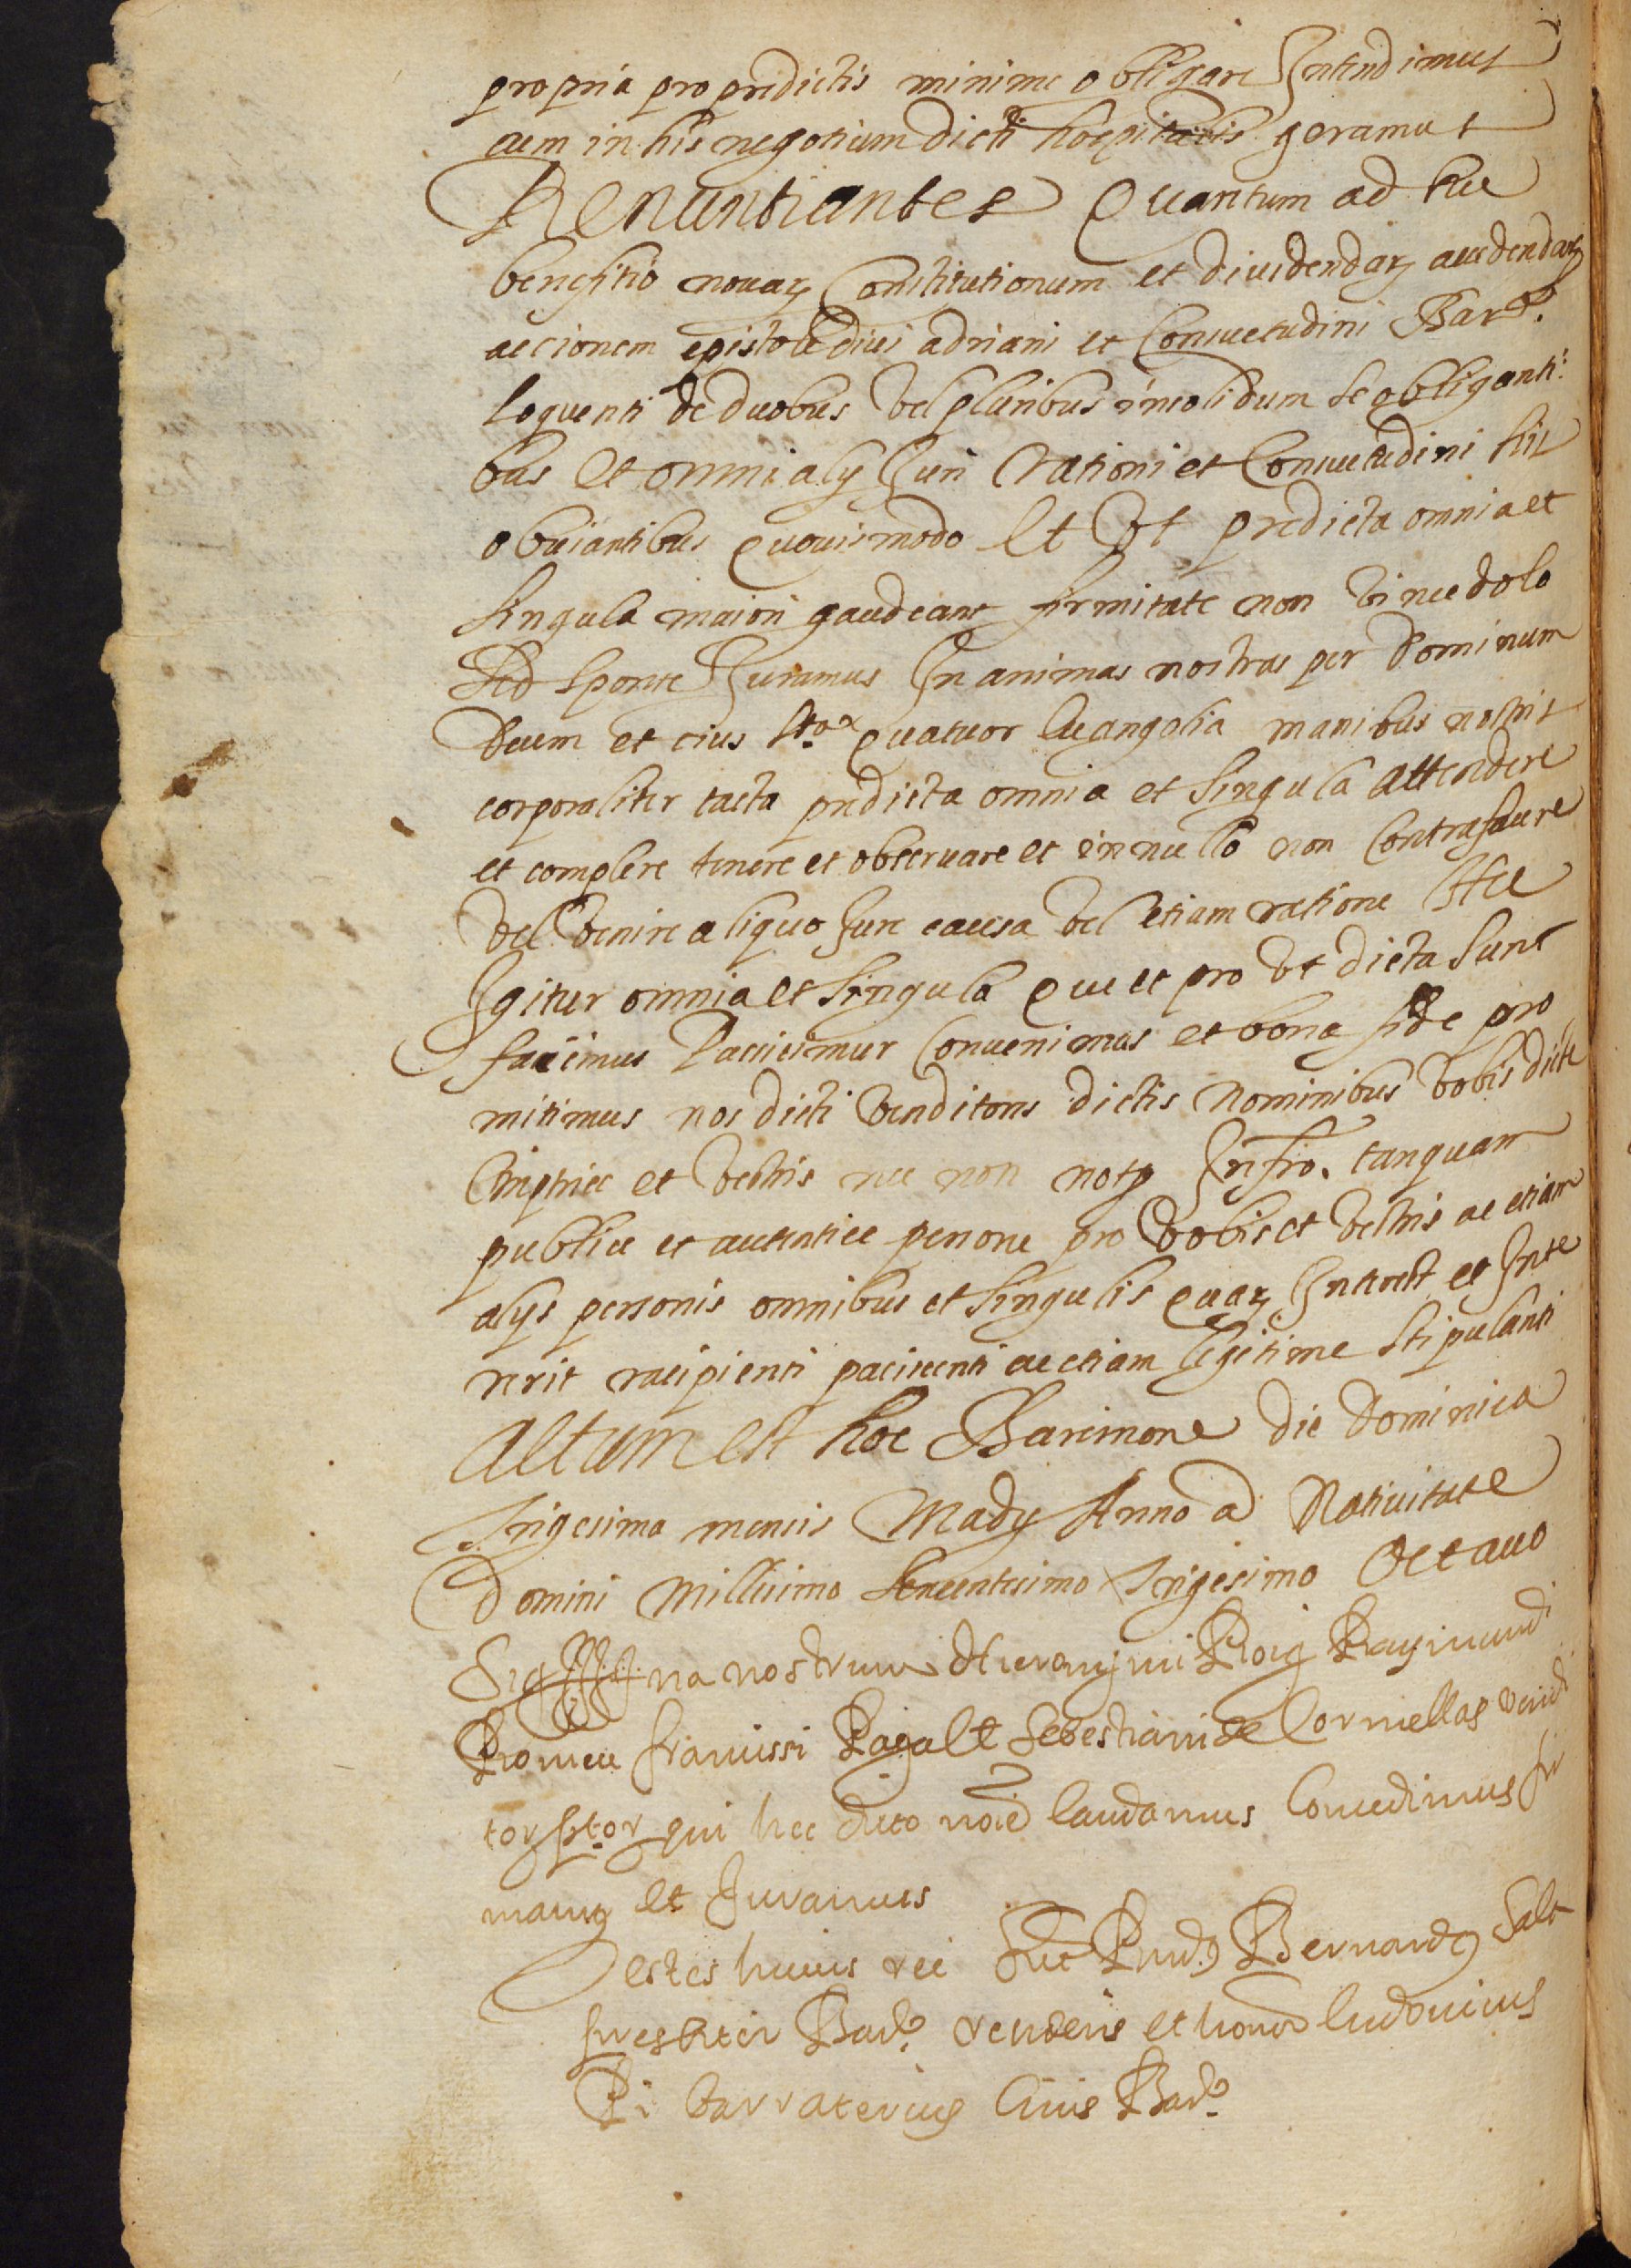 propria pro predictis minime obligare Intendimus
cum in his negotium dicti hospitalis geramus
Renuntiantes Quantum ad hec
benefitio novarꝫ Constitutionum et dividendarꝫ accedendarꝫ
accionem epistole divi adriani et Consuetudini Barᵉ.
loquenti de duobus vel pluribus insolidum se obliganti:
bus Et omni aly Juri rationi et Consuetudini his
obviantibus quovismodo Et Vt predicta omnia et
singula maiori gaudeant firmitate non vi nec dolo
sed sponte Juramus In animas nostras per Dominum
Deum et eius Stᵃ quatuor Evangelia manibus nostris
corporaliter tacta predicta omnia et singula attendere
et complere tenere et observare et in nullo non Contrafacere
vel venire aliquo Jure causa vel etiam ratione Hec
Igitur omnia et singula que et pro vt dicta sunt
facimus Paciscimur Convenimus et bona fide pro
mitimus nos dicti venditores dictis nominibus vobis dicte
Emptrici et vestris nec non notꝫ Infro. tanquam
publice et autentice persone pro vobis et vestris ac etiam
alys personis omnibus et singulis quarꝫ Interest et Inte
rerit racipienti paciscenti ac etiam legitime stipulanti
Actum est hoc Barcinone die Dominica
trigesima mensis Mady Anno a Nativitate
Domini Millesimo Sexcentesimo trigesimo Octavo
Sig na nostrum Hieronymi Roig Raymundi
Romeu francissi Ragalt Sebestiani de Cormellas vendi
tor ptor qui hec dicto noie laudamus Concedimus fir
mamꝰ et Juramus
Testes huius rei sut Rndꝰ Bernardꝰ Sala
presbiter Barᵉ. residens et honor Ludovicus
Pi barraterius Civis Barᵉ.